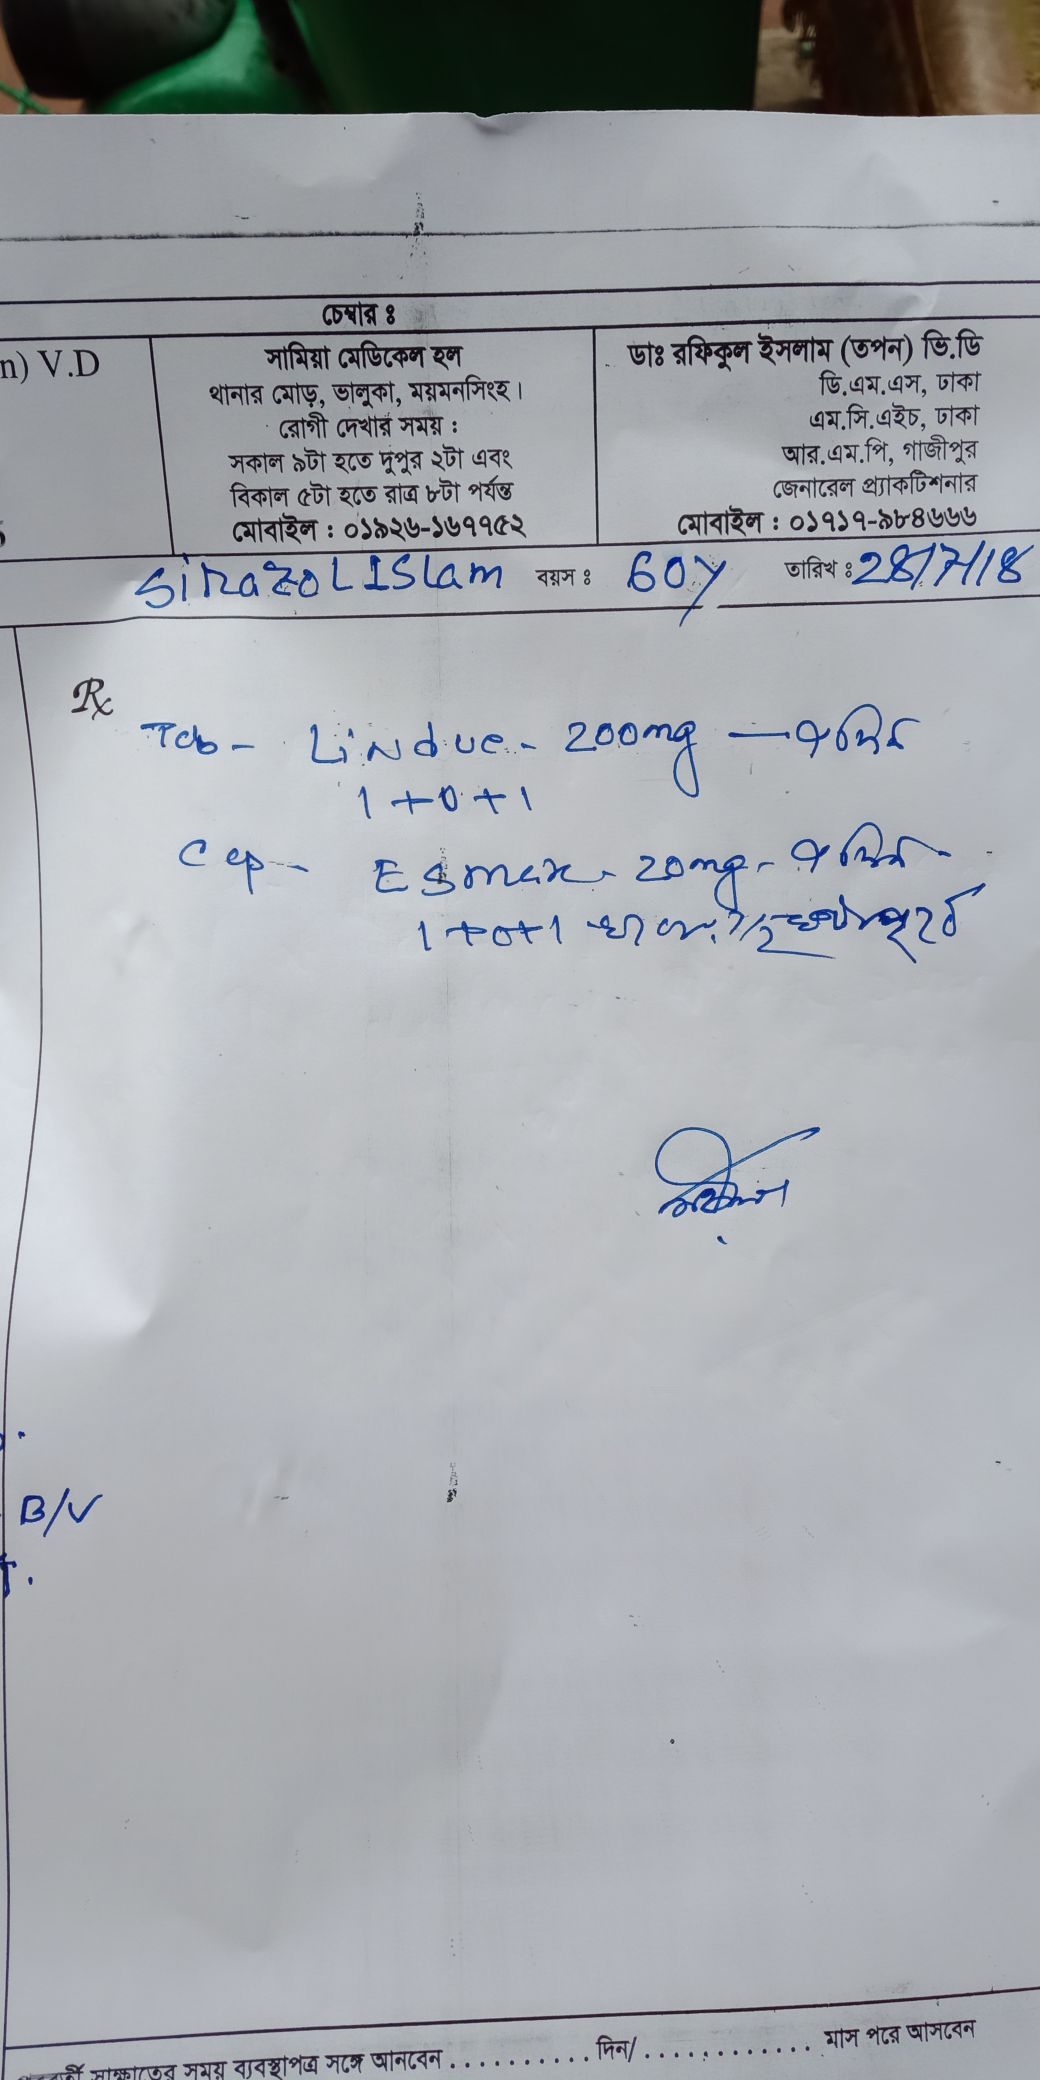 চেম্বার ঃ
n) V.D
সামিয়া মেডিকেল হল
থানার মোড়, ভালুকা, ময়মনসিংহ।
রোগী দেখার সময় :
সকাল ৯টা হতে দুপুর ২টা এবং
বিকাল ৫টা হতে রাত্র ৮টা পর্যন্ত
মোবাইল : ০১৯২৬-১৬৭৭৫২
ডাঃ রফিকুল ইসলাম (তপন) ভি.ডি
ডি.এম.এস, ঢাকা
এম.সি.এইচ, ঢাকা
আর.এম.পি, গাজীপুর
জেনারেল প্র্যাকটিশনার
মোবাইল : ০১৭১৭-৯৮৪৬৬৬
SiRazoL ISLam বয়স ঃ 60y তারিখ ঃ 28/7/18
Rx
Tab - Lindue - 200mg — ৭ দিন
1+0+1
Cap - Esmax - 20mg - ৭ দিন
1+0+1
B/V
সাক্ষাতের সময় ব্যবস্থাপত্র সঙ্গে আনবেন . . . . . . . . . . দিন/ . . . . . . . . . . . . মাস পরে আসবেন